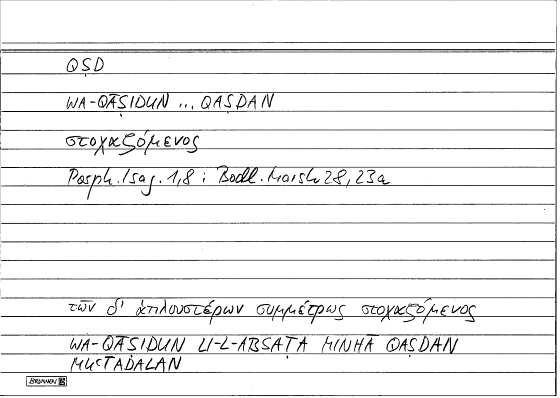 QṢD
WA-QĀṢIDUN ... QAṢDAN
στοχαζόμενος
Porph. Isag. 1,8 ; Bodl. Marsh 28, 23a
τῶν δ' ἁπλουστέρων συμμέτρως στοχαζόμενος
WA-QĀṢIDUN LI-L-ABSAṬA MINHĀ QAṢDAN
MUʿTADALAN
BRUNNEN